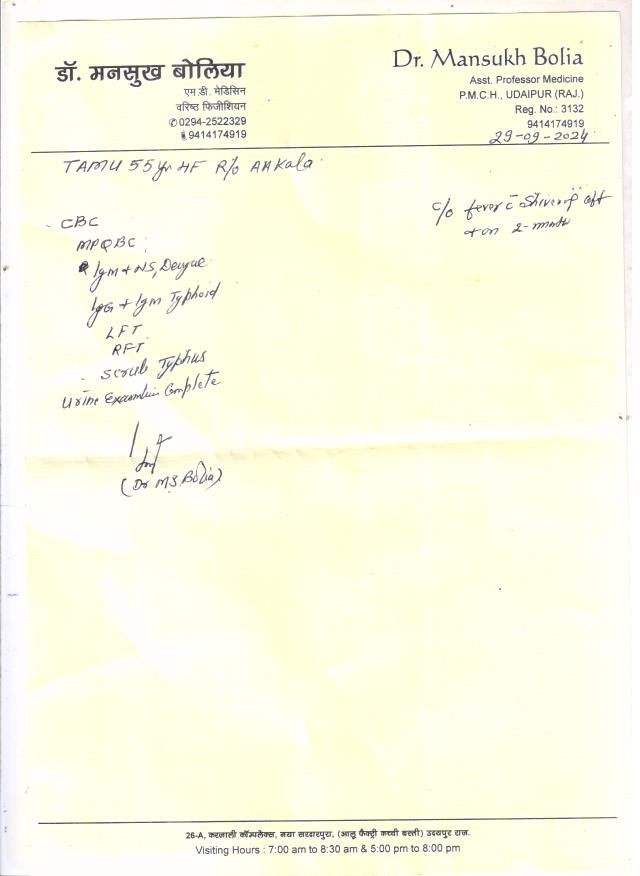 डॉ. मनसुख बोलिया
एम.डी. मेडिसिन
वरिष्ठ फिजीशियन
0294-2522329
9414174919
Dr. Mansukh Bolia
Asst. Professor Medicine
P.M.C.H., UDAIPUR (RAJ.)
Reg. No.: 3132
9414174919
29-09-2024
TAMU 55 yr HF R/o
c/o fever c̄ Shivering off
+ on 2-month
CBC
MPQBC
Igm + NS, Dengue
IgG + Igm Typhoid
LFT
RFT
Scrub Typhus
Urine Examination Complete
(Dr M.S. Bolia)
26-A, करजाली कॉम्पलेक्स, नया सरदारपुरा, (आलू फैक्ट्री कच्ची बस्ती) उदयपुर राज.
Visiting Hours : 7:00 am to 8:30 am & 5:00 pm to 8:00 pm